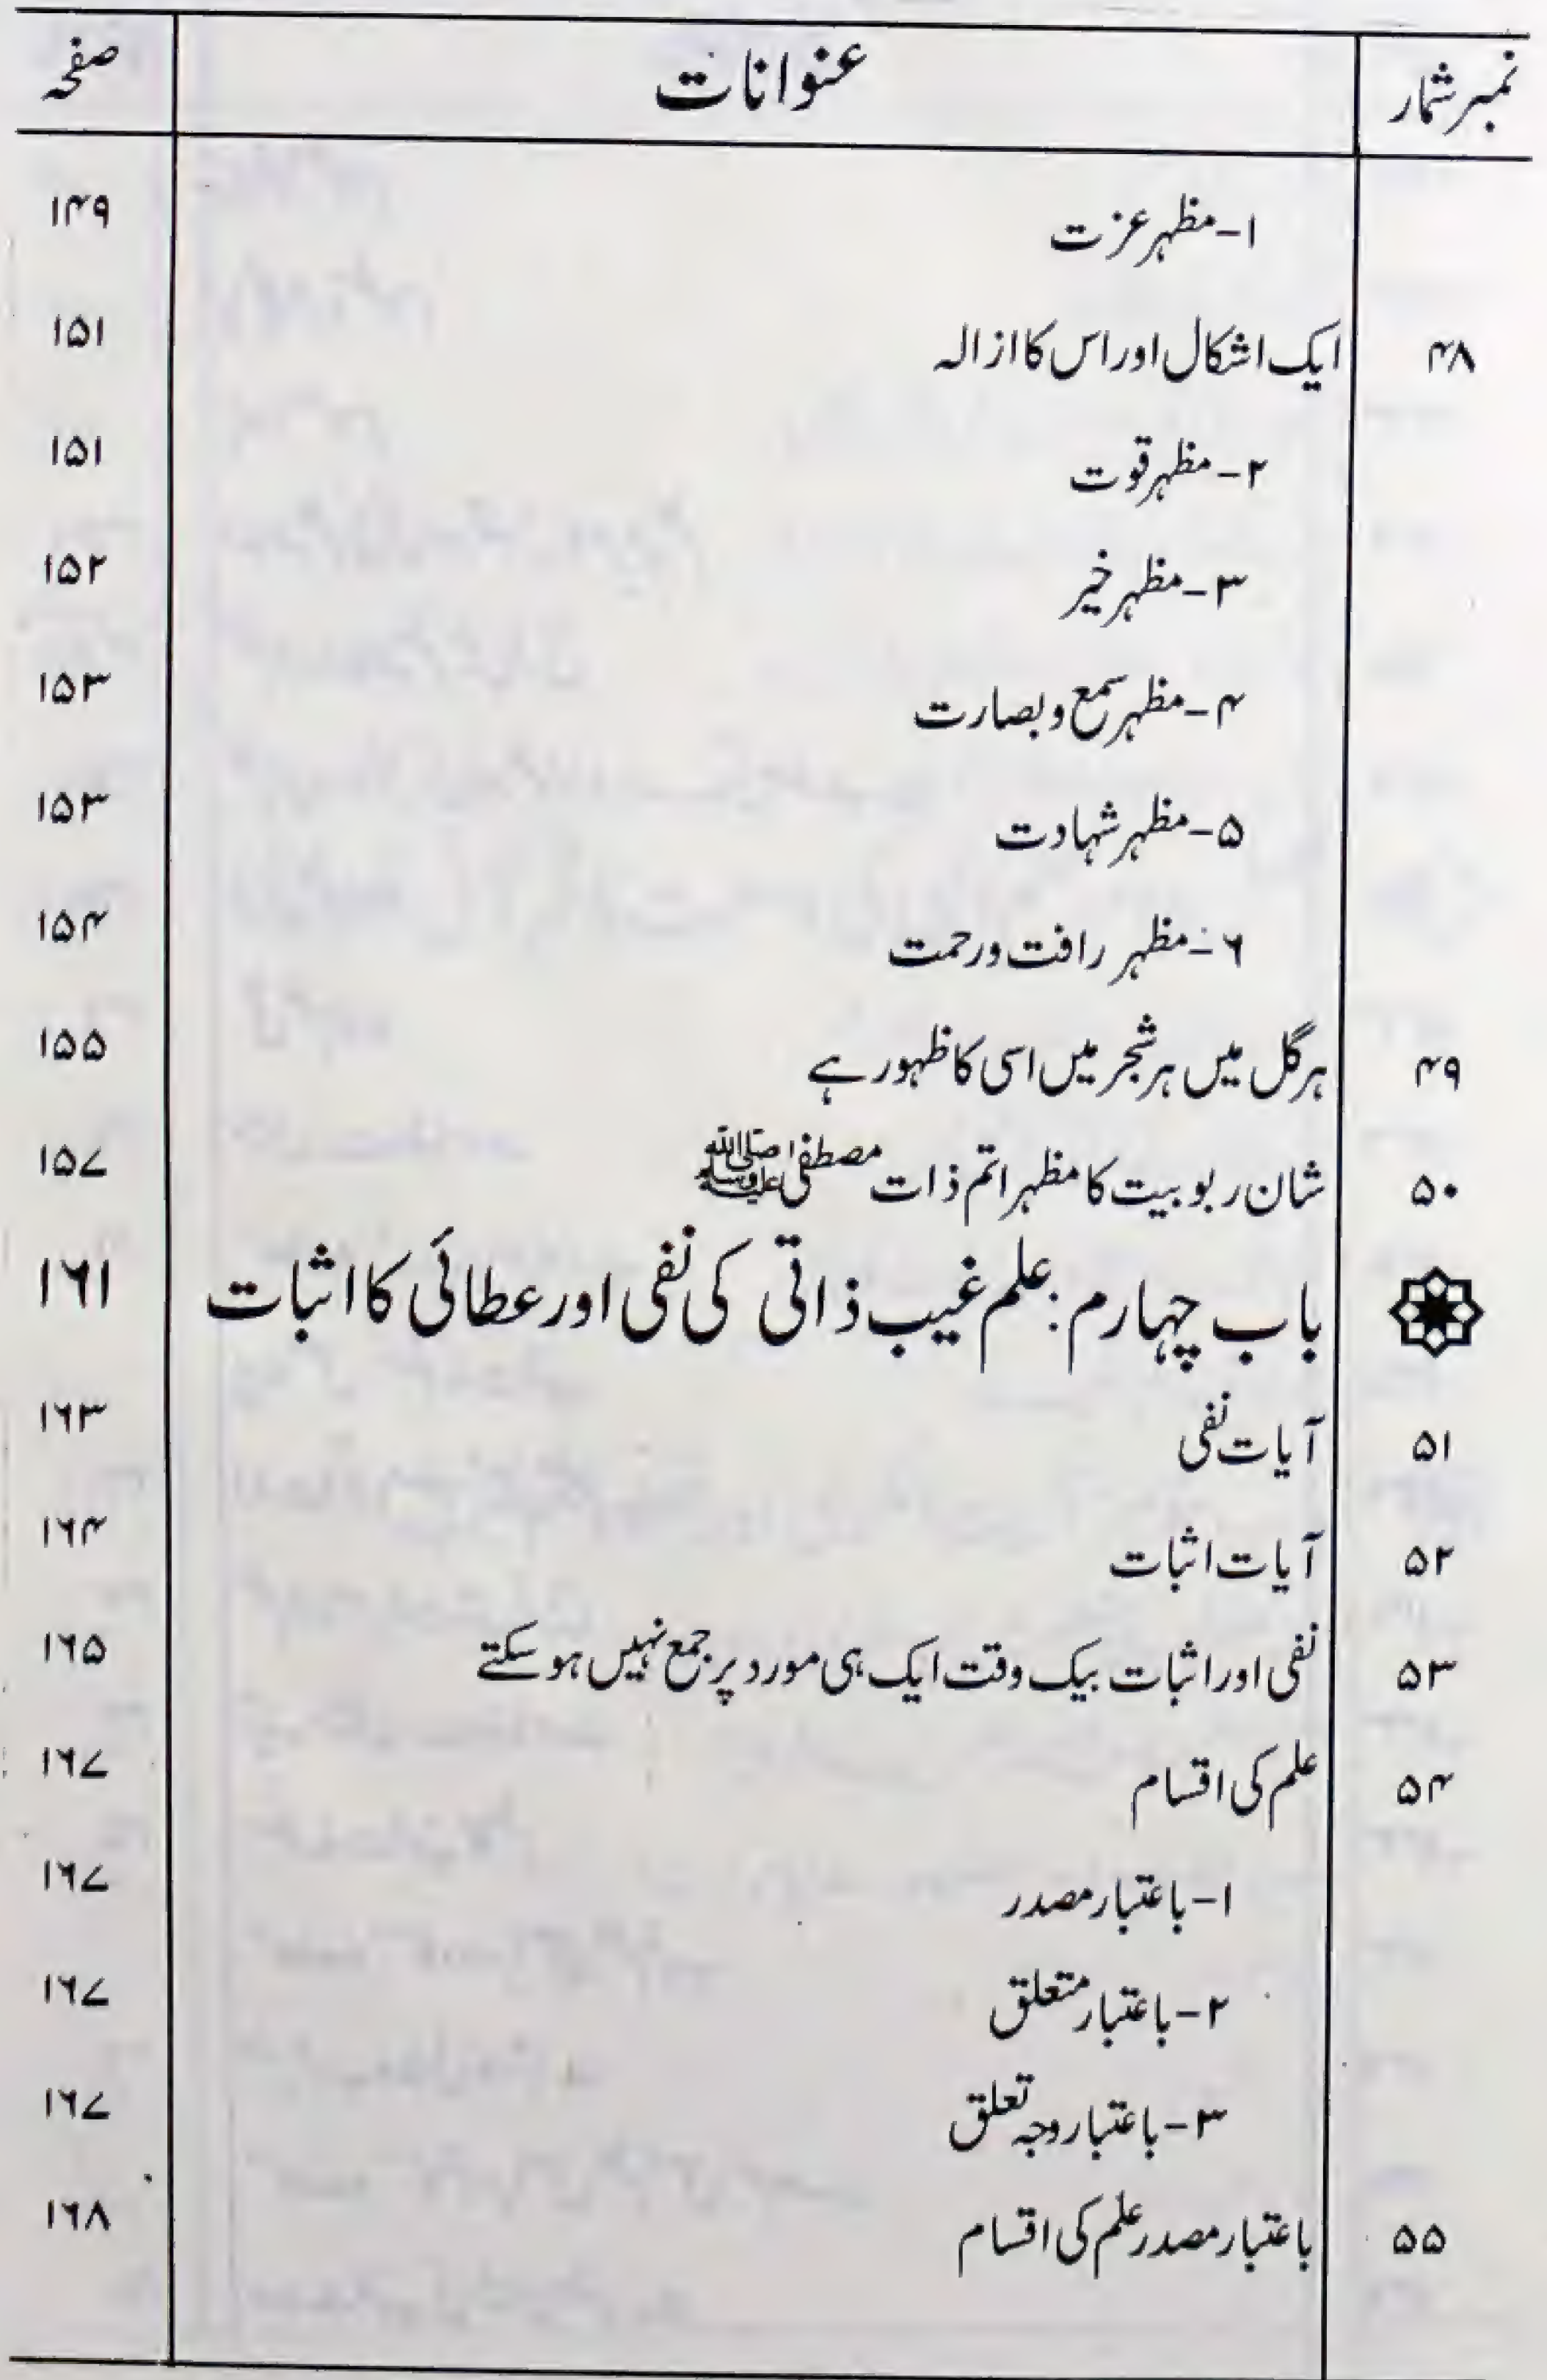 نمبر شمار عنوانات صفحہ
۱- مظہر عزت ۱۴۹
۴۸ ایک اشکال اور اس کا ازالہ ۱۵۱
۲- مظہر قوت ۱۵۱
۳- مظہر خیر ۱۵۲
۴- مظہر سمع و بصارت ۱۵۳
۵- مظہر شہادت ۱۵۳
۶- مظہر رافت ورحمت ۱۵۴
۴۹ ہر گل میں ہر شجر میں اسی کا ظہور ہے ۱۵۵
۵۰ شان ربوبیت کا مظہر اتم ذات مصطفیٰ ﷺ ۱۵۷
باب چہارم: علم غیب ذاتی کی نفی اور عطائی کا اثبات ۱۶۱
۵۱ آیات نفی ۱۶۳
۵۲ آیات اثبات ۱۶۴
۵۳ نفی اور اثبات بیک وقت ایک ہی مورد پر جمع نہیں ہو سکتے ۱۶۵
۵۴ علم کی اقسام ۱۶۷
۱- باعتبار مصدر ۱۶۷
۲- باعتبار متعلق ۱۶۷
۳- باعتبار وجہ تعلق ۱۶۷
۵۵ باعتبار مصدر علم کی اقسام ۱۶۸